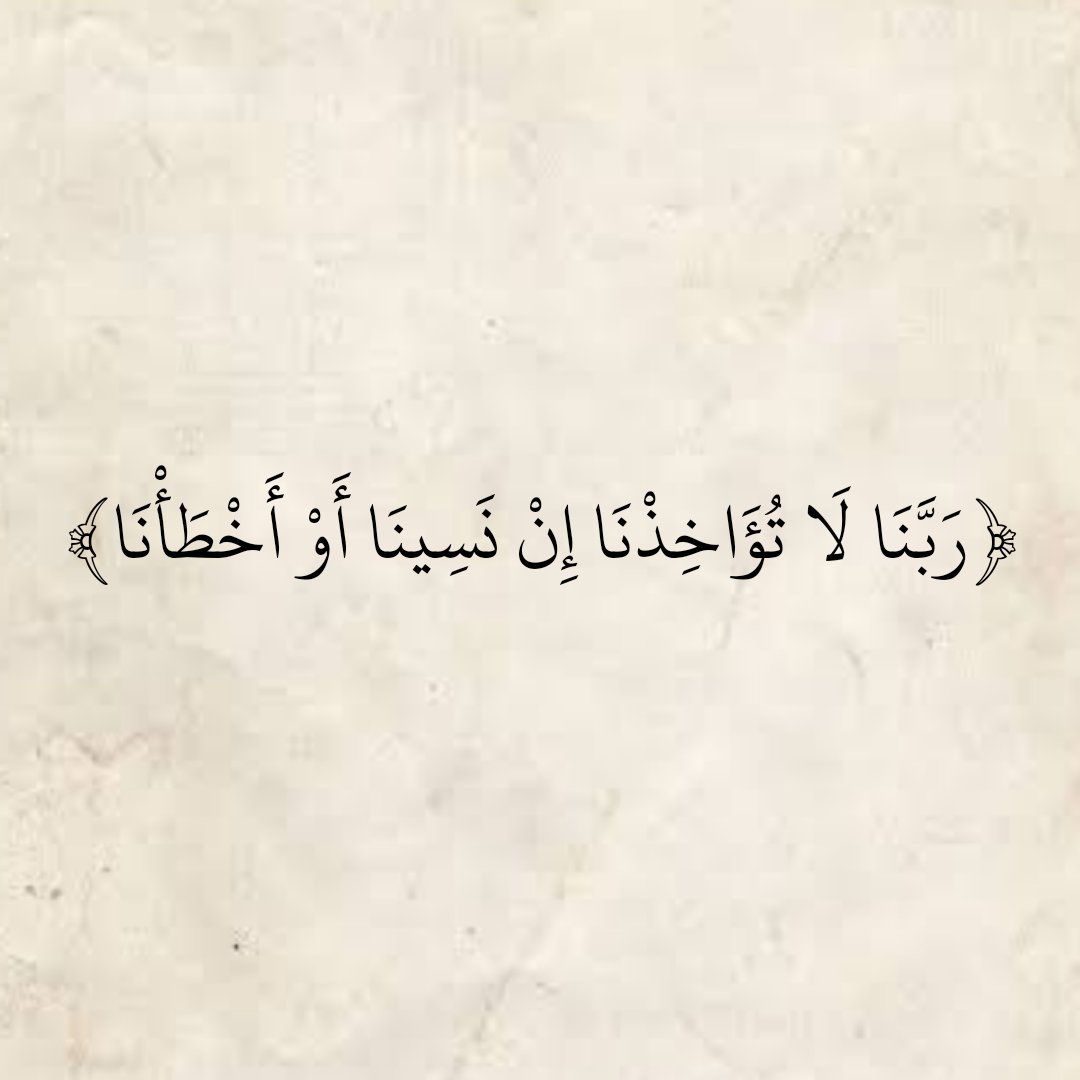 ﴿رَبَّنَا لَا تُؤَاخِذْنَا إِنْ نَسِينَا أَوْ أَخْطَأْنَا﴾